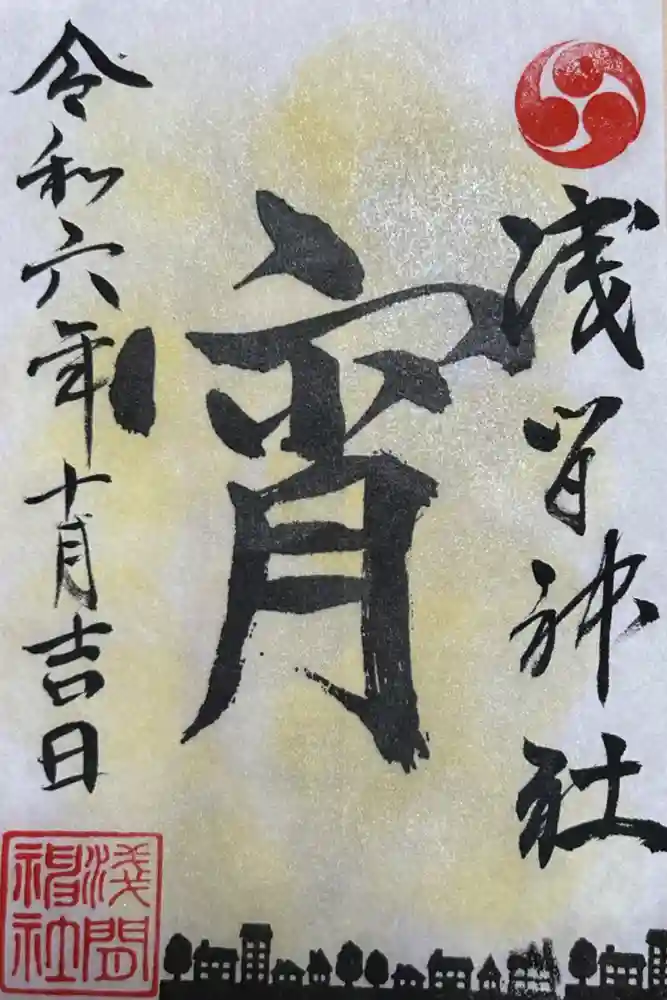 浅間神社
宵
令和六年十月吉日
淺間
神社